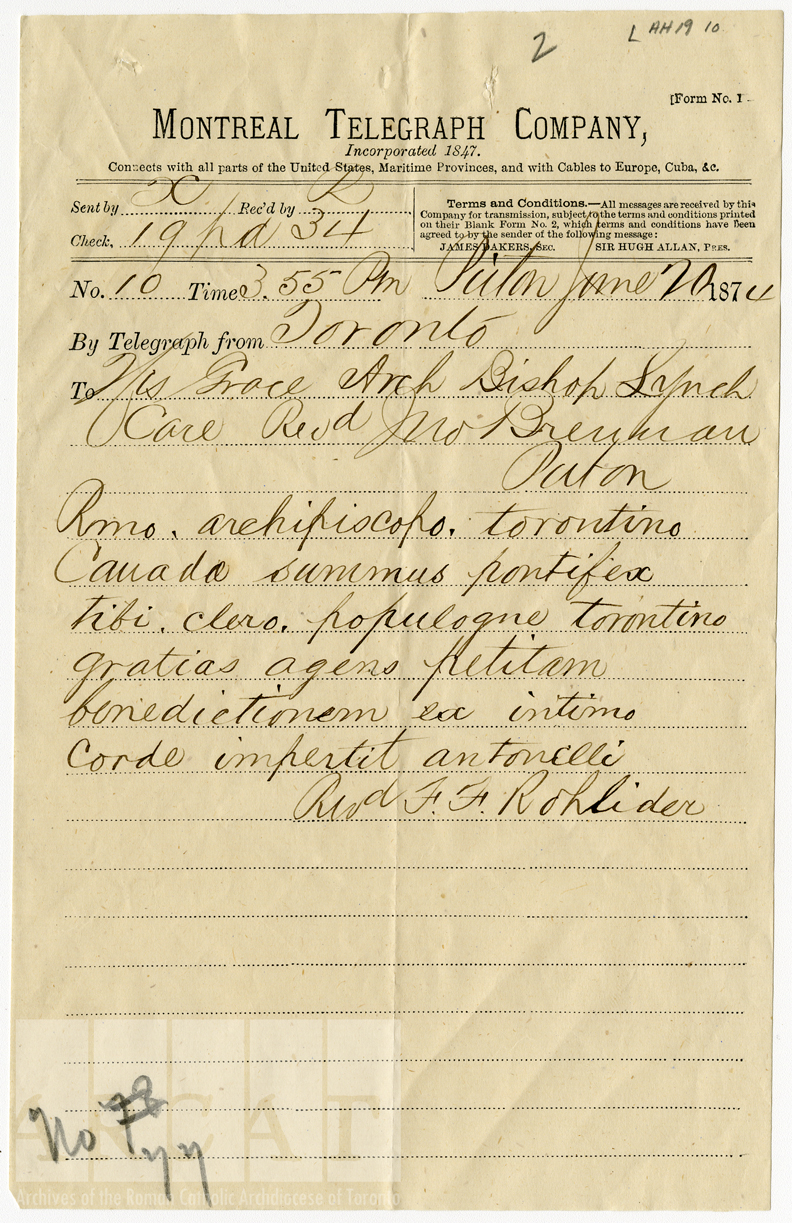 2
L AH19 10
[Form No. 1
MONTREAL TELEGRAPH COMPANY,
Incorporated 1847.
Connects with all parts of the United States, Maritime Provinces, and with Cables to Europe, Cuba, &c.
Sent by X Rec'd by
Check. 19 pd 34
Terms and Conditions.—All messages are received by this
Company for transmission, subject to the terms and conditions printed
on their Blank Form No. 2, which terms and conditions have been
agreed to by the sender of the following message:
JAMES DAKERS, Sec. SIR HUGH ALLAN, Pres.
No. 10 Time 3.55 Pm Picton June 20 1874
By Telegraph from Toronto
To His Grace Arch Bishop Lynch
Care Revd Jno Brennan
Picton
Rmo. archipiscopo. torontino
Canada summus pontifex
tibi. clero. populogne torontino
gratias agens petitam
benedictionem ex intimo
Corde impertit antonelli
Revd F. F. Rohlider
No
ARCAT
Archives of the Roman Catholic Archdiocese of Toronto